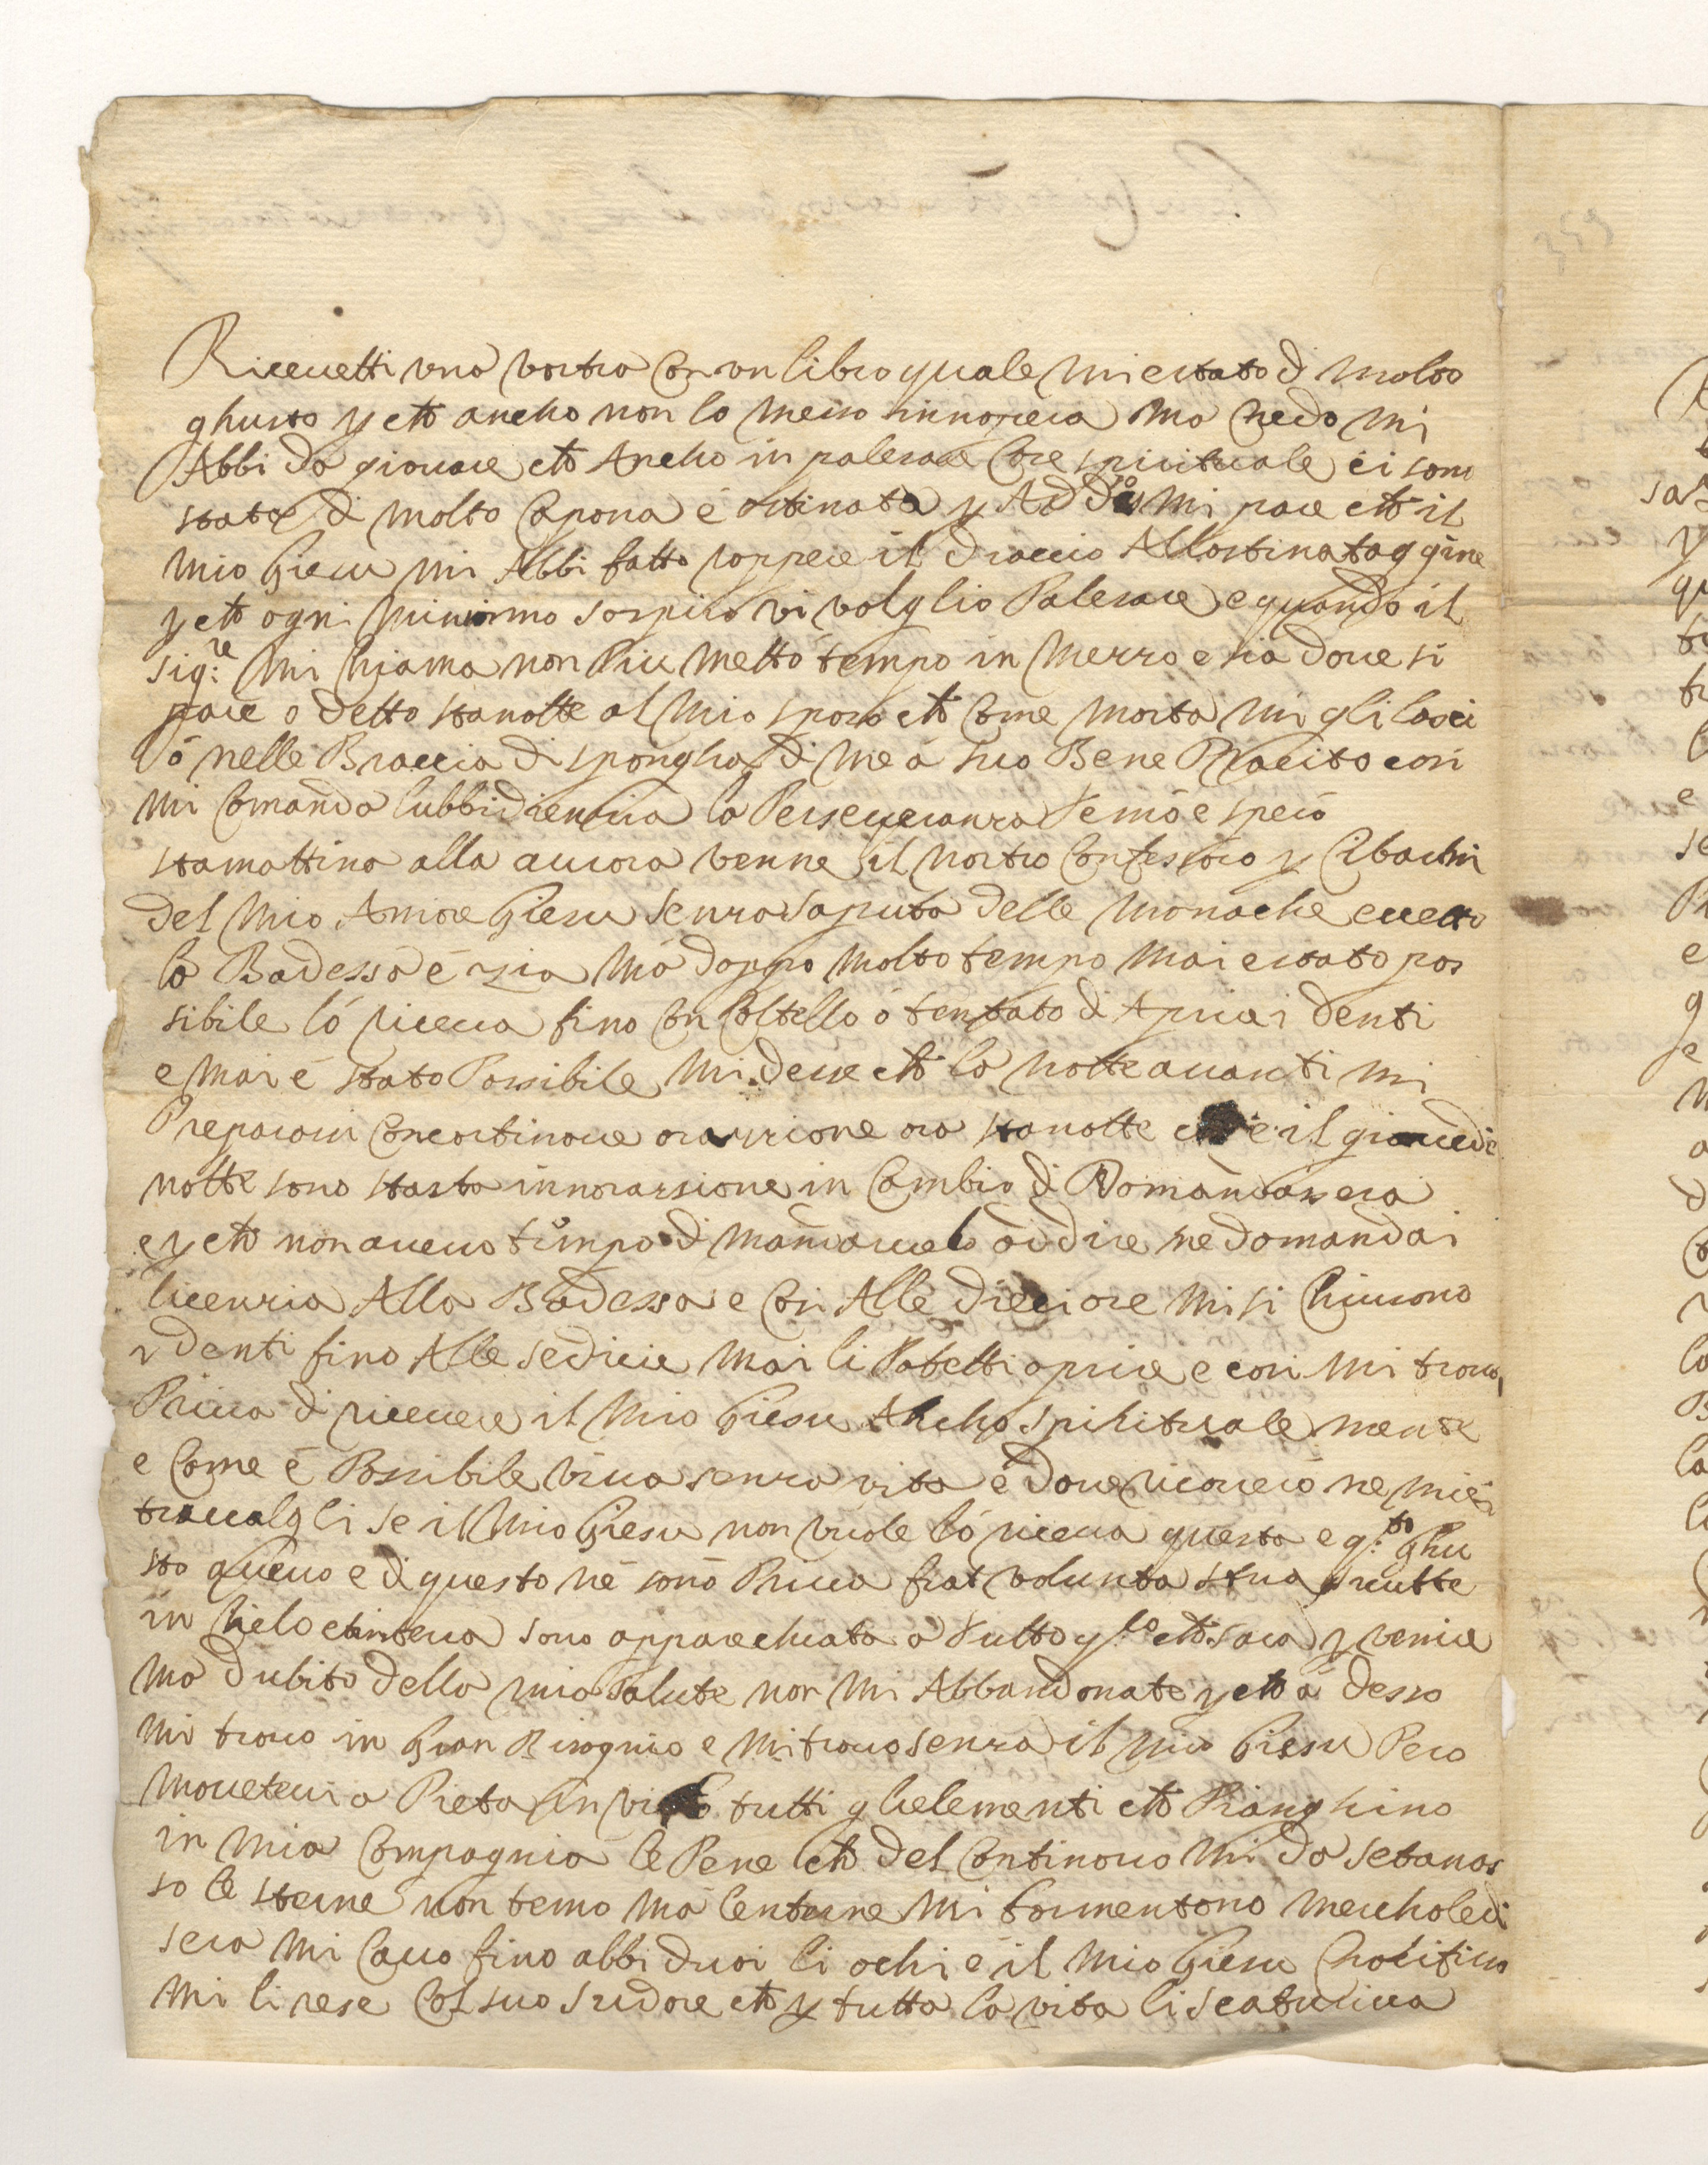 Riceuetti una vostra con un libro quale mi e stato di molto
ghusto p che ancho non lo messo innopera ma credo mi
Abbi da giouare che Ancho in palesare cose spirituale ci sono
stata di molto Capona é ostinata p Addio mi pare che il
mio Giesu mi Abbi fatto roppere il draccio Allostinataggine
p che ogni minimo sospiro vi volglio Palesare e quando il
sig.re mi chiama non piu metto tempo in Mezzo e sia doue si
pare o detto stanotte al mio sposo che come morta mi gli lasci
ó nelle Braccia di spongha di me á suo Bene Placito cosi
mi Comanda lubbidienzia la Perseueranza temo e spero
stamattina alla aurora venne il nostro Confessoro p Cibachi
del mio Amore Giesu senza saputa delle monache eccetto
la Badessa é zia ma doppo molto tempo mai e stato pos
sibile ló riceua fino con Coltello ó tentato di Aprire i denti
e mai é stato Possibile mi disse che la notte auanti mi
Preparassi con continoua orazzione ora stanotte e il giouedi
notte sono stata innorazsione in Cambio di Domandassera
e p che non aueuo tempo di mandaruelo ad dire ne domandai
licenzia Alla Badessa e cosi Alle dieci ore mi si chiusono
i denti fino Alle sedicie mai li Potetti aprire e cosi mi trouo
Priua di riceuere il mio Giesu Ancho spirituale mente
e Come é Possibile viua senza vita é doue ricorreró ne miei
trauralgli se il mio Giesu non vuole ló riceua questa e q.to ghu
sto aueuo e di questo ne sono Priua fiat volunta stua sicutte
in Cielo etinterra sono apparechiata a tutto q.lo che sara p venire
ma dubito della mia salute non mi Abbandonate p che a desso
mi trouo in Gran Bisognio e mi trouo senza il mio Giesu Pero
moueteui a Pieta in tutti glielementi che Pianghino
in mia Compagnia le Pene che del Continouo mi da setanas
so le sterne non temo ma lenterne mi tormentono mercholedi
sera mi Cauo fino abbi duoi li ochi é il mio Giesu Crocifisso
mi li rese Col suo sudore che p tutta la vita li scaturiua